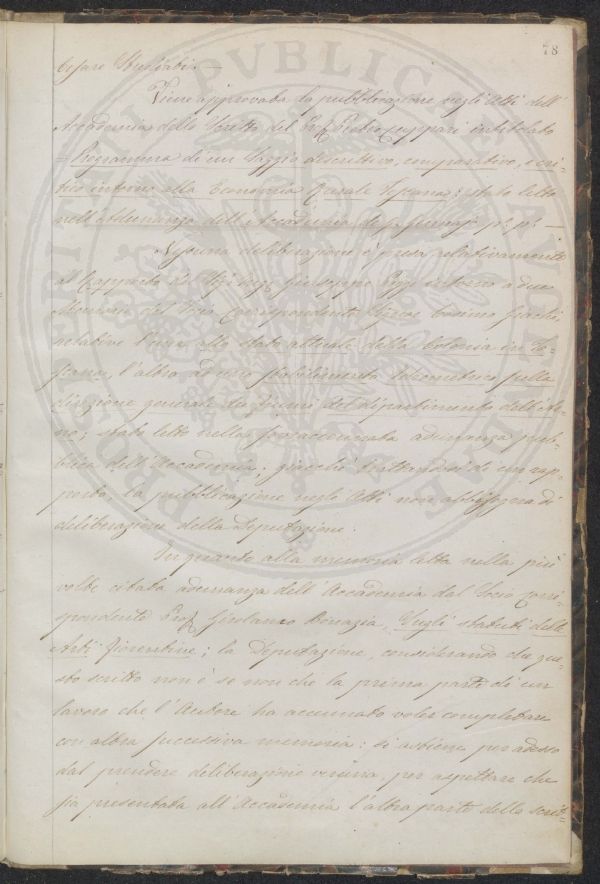 78
Cesare Studiati. —
Viene approvata la pubblicazione negli Atti dell'
Accademia dello Scritto del Prof. Pietro Cuppari intitolato
= Programma di un Saggio descrittivo, comparativo, e cri-
tico intorno alla Economia Rurale Toscana: stato letto
nell'Adunanza dell'Accademia de' p. p. —
Nessuna deliberazione è presa relativamente
al Rapporto del Giuseppe intorno a due
Memorie del Socio Corrispondente
l'una allo stato attuale della in To-
scana, l'altra ad uno stabilimento sulla
direzione generale dei del dipartimento dell'Ar-
no; stato letto nella adunanza pub-
blica dell'Accademia; giacchè trattandosi di un rap-
porto, la pubblicazione negli Atti non abbisogna di
deliberazione della Deputazione.
In quanto alla memoria letta nella più
volte citata adunanza dell'Accademia dal Socio Corri-
spondente Prof. Girolamo Buonazia, Sugli statuti delle
Arti Fiorentine; la Deputazione, considerando che que-
sto scritto non è se non che la prima parte di un
lavoro che l'Autore ha accennato voler completare
con altra successiva memoria: si astiene per adesso
dal prendere deliberazione veruna, per aspettare che
sia presentata all'Accademia l'altra parte dello scrit-